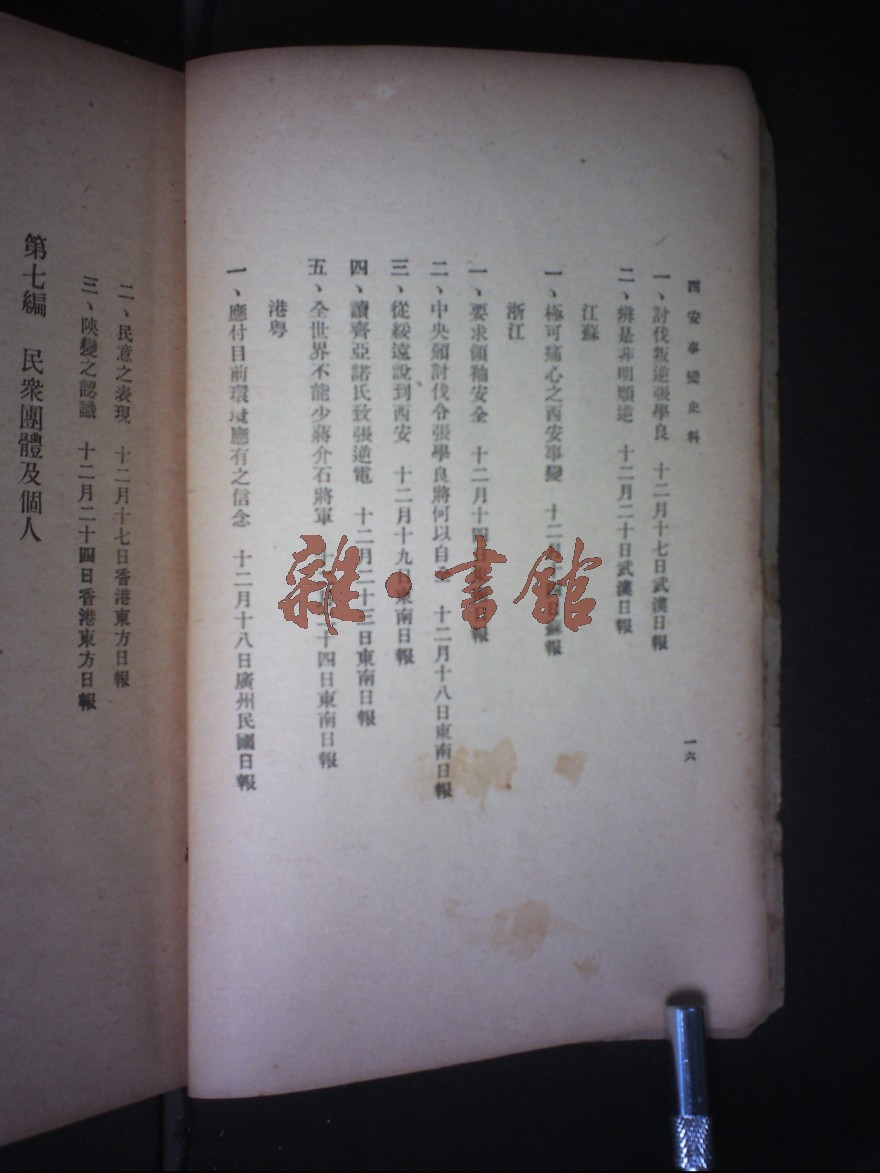 西安事變史料
一六
一、討伐叛逆張學良　十二月十七日武漢日報
二、辨是非明順逆　十二月二十日武漢日報
江蘇
一、極可痛心之西安事變　十二月十四日蘇報
浙江
一、要求領袖安全　十二月十四日東南日報
二、中央頒討伐令張學良將何以自　十二月十八日東南日報
三、從綏遠說到西安　十二月十九日東南日報
四、讀齊亞諾氏致張逆電　十二月二十三日東南日報
五、全世界不能少蔣介石將軍　十二月二十四日東南日報
港粵
一、應付目前環境應有之信念　十二月十八日廣州民國日報
二、民意之表現　十二月十七日香港東方日報
三、陝變之認識　十二月二十四日香港東方日報
第七編　民衆團體及個人
雜·書館